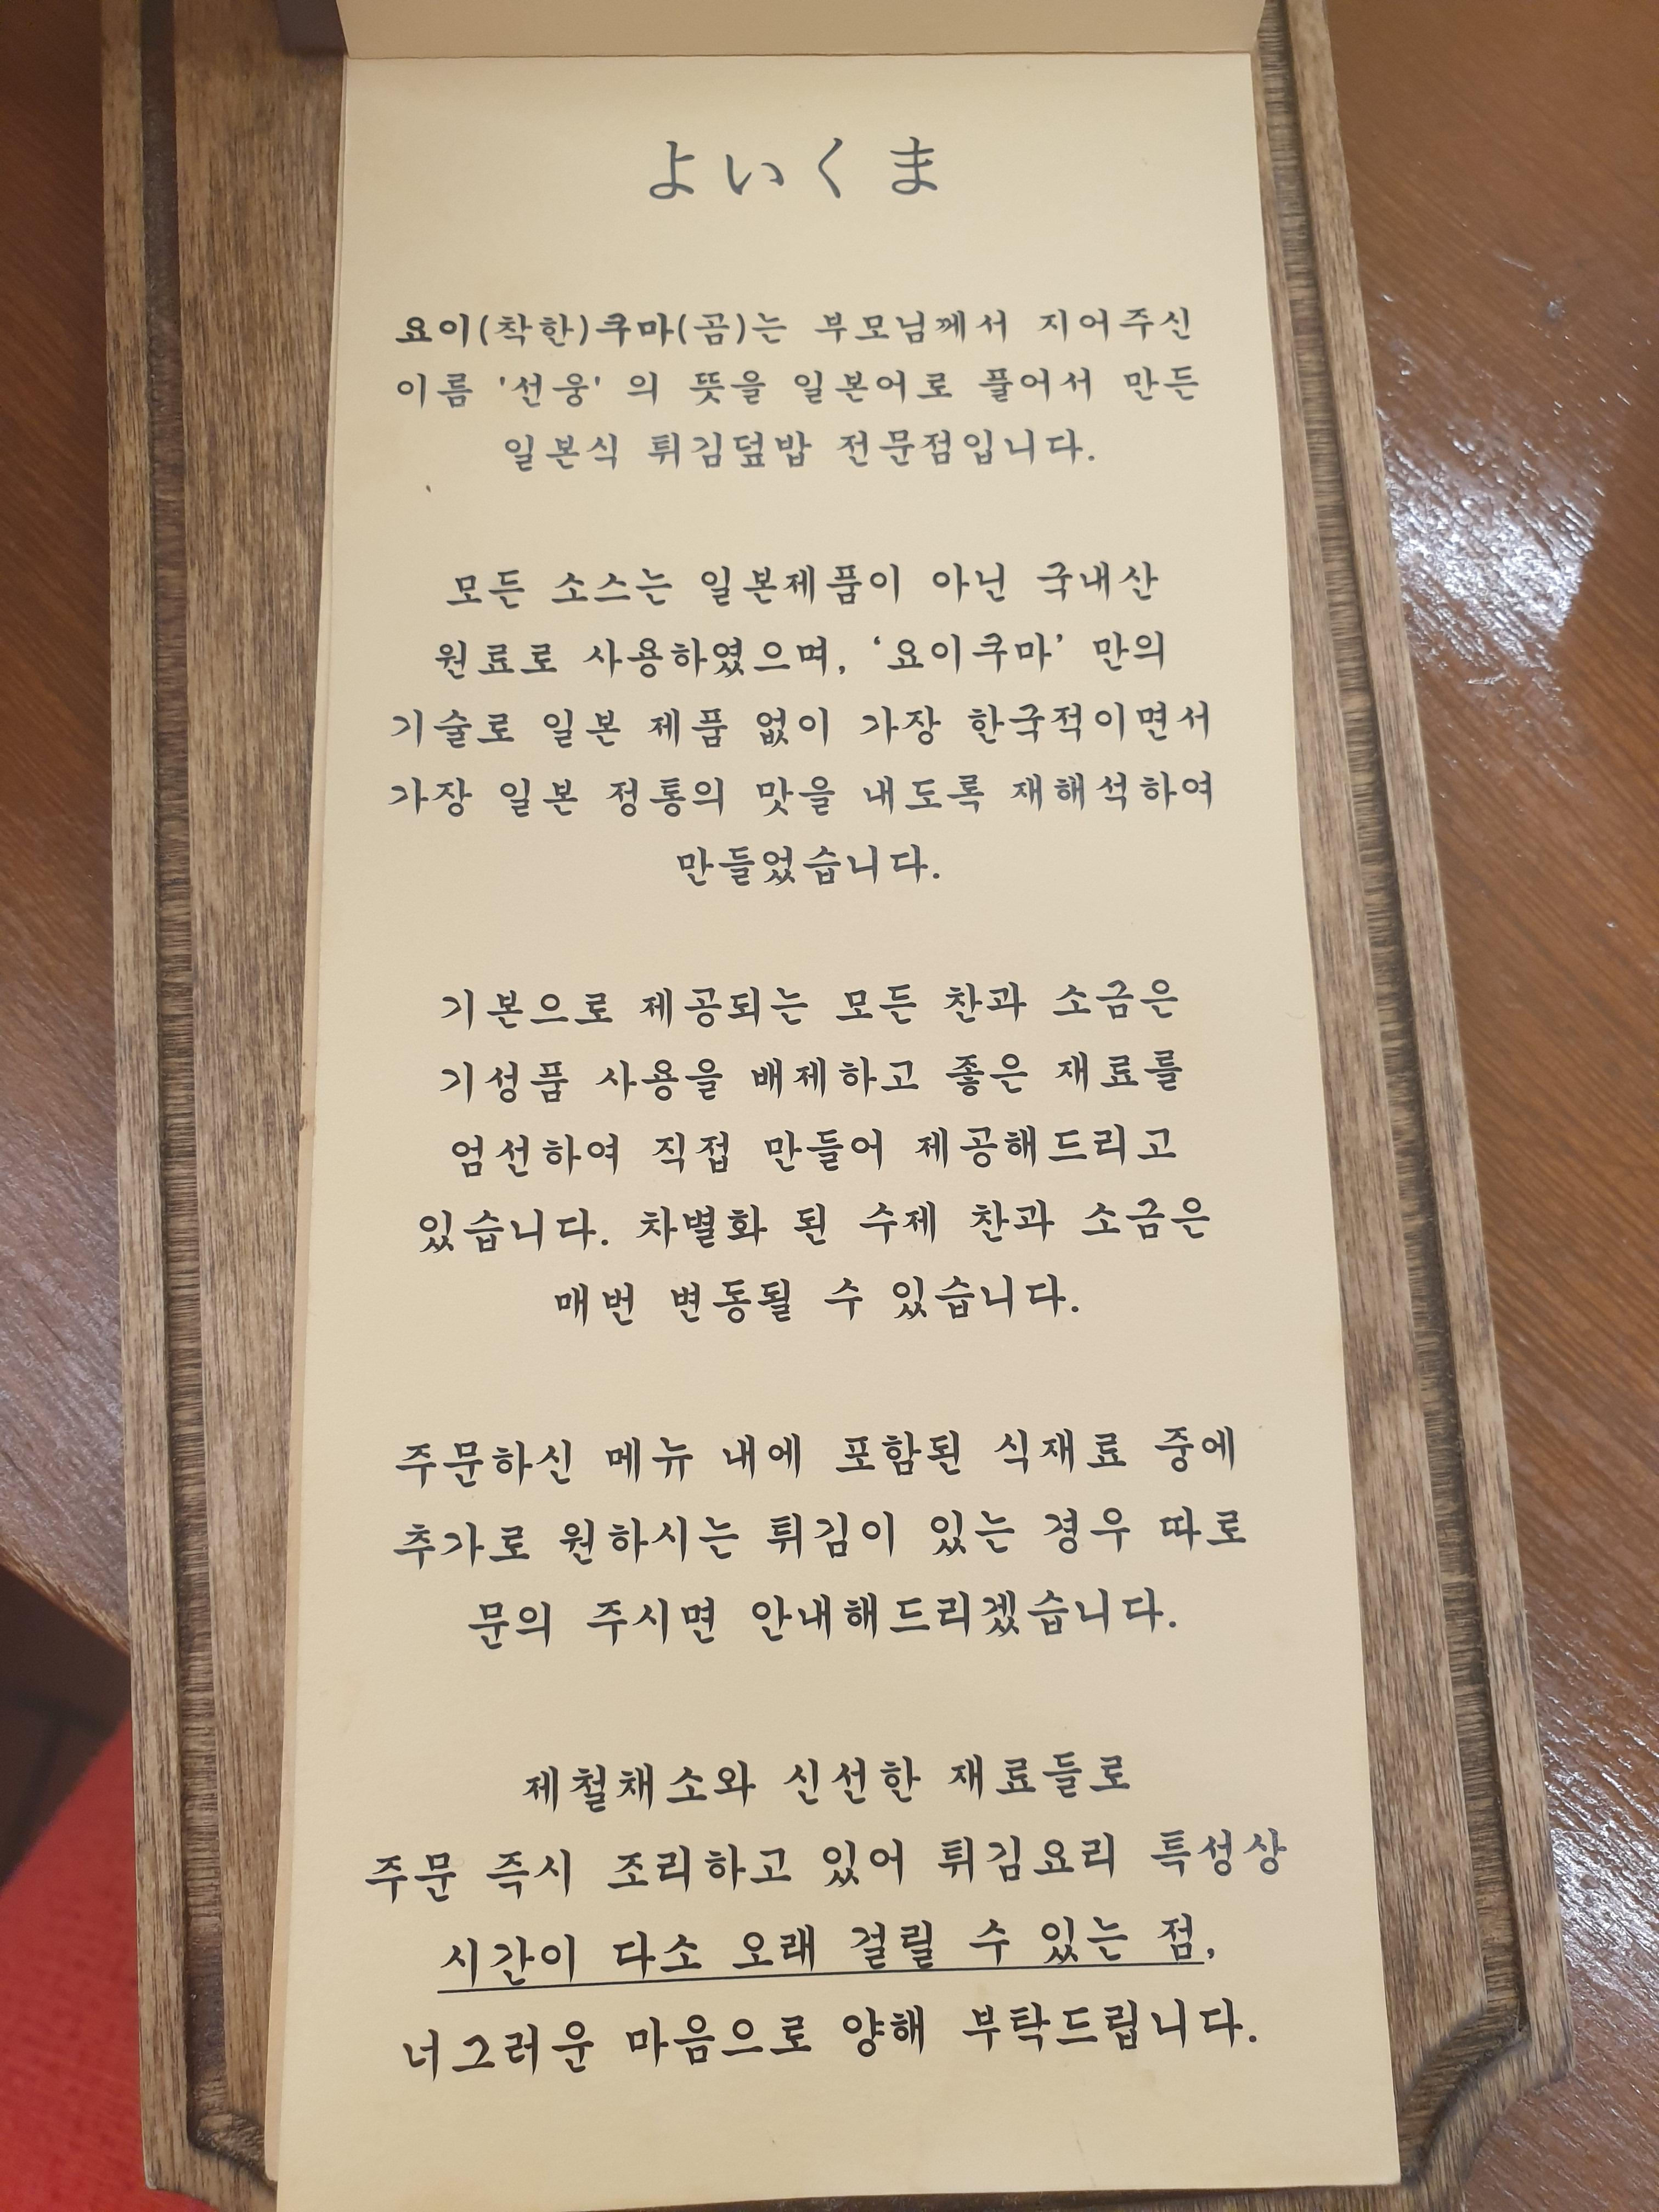 よいくま
요이(착한)쿠마(곰)는 부모님께서 지어주신
이름 '선웅' 의 뜻을 일본어로 풀어서 만든
일본식 튀김덮밥 전문점입니다.
모든 소스는 일본제품이 아닌 국내산
원료로 사용하였으며, ‘요이쿠마’ 만의
기술로 일본 제품 없이 가장 한국적이면서
가장 일본 정통의 맛을 내도록 재해석하여
만들었습니다.
기본으로 제공되는 모든 찬과 소금은
기성품 사용을 배제하고 좋은 재료를
엄선하여 직접 만들어 제공해드리고
있습니다. 차별화 된 수제 찬과 소금은
매번 변동될 수 있습니다.
주문하신 메뉴 내에 포함된 식재료 중에
추가로 원하시는 튀김이 있는 경우 따로
문의 주시면 안내해드리겠습니다.
제철채소와 신선한 재료들로
주문 즉시 조리하고 있어 튀김요리 특성상
시간이 다소 오래 걸릴 수 있는 점,
너그러운 마음으로 양해 부탁드립니다.